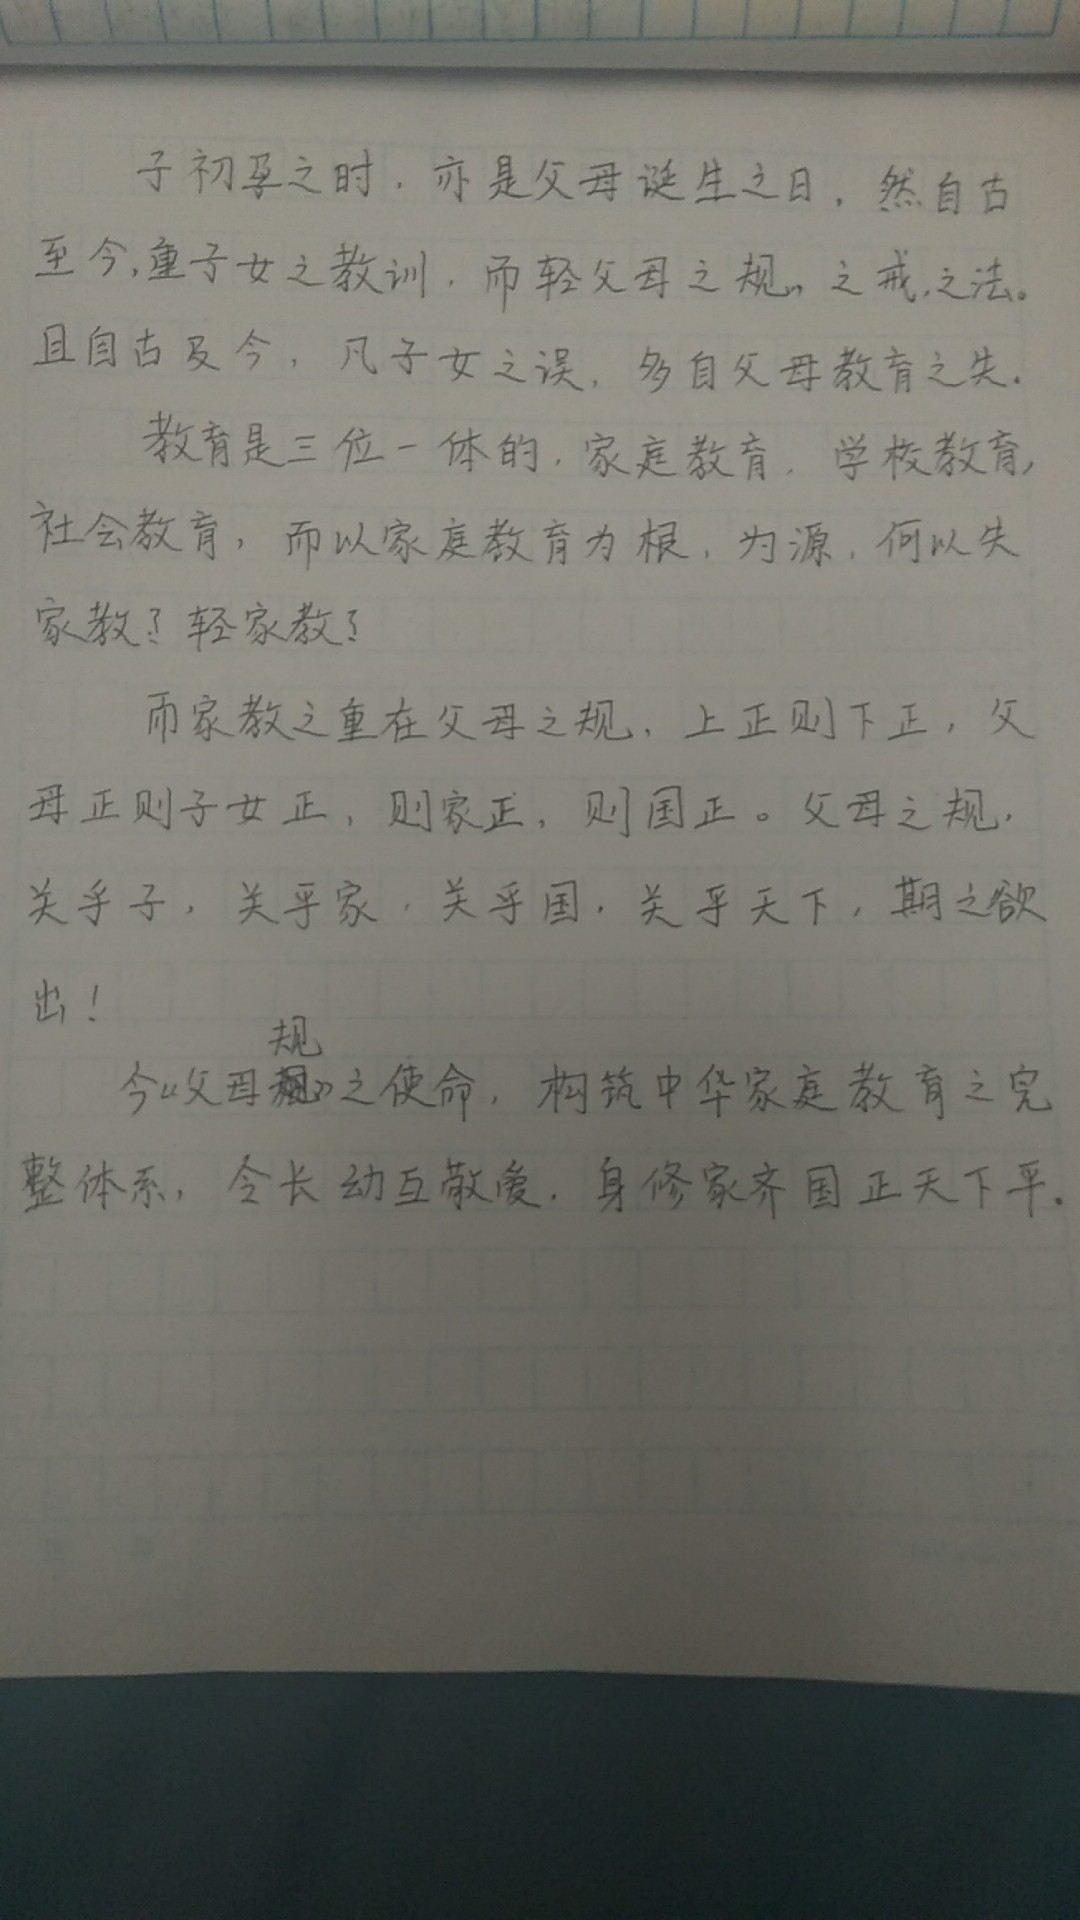 子初孕之时，亦是父母诞生之日，然自古
至今，重子女之教训，而轻父母之规，之戒，之法。
且自古及今，凡子女之误，多自父母教育之失。
教育是三位一体的，家庭教育，学校教育，
社会教育，而以家庭教育为根，为源，何以失
家教？轻家教？
而家教之重在父母之规，上正则下正，父
母正则子女正，则家正，则国正。父母之规，
关乎子，关乎家，关乎国，关乎天下，期之欲
出！
规
今“父母规”之使命，构筑中华家庭教育之完
整体系，令长幼互敬爱，身修家齐国正天下平。